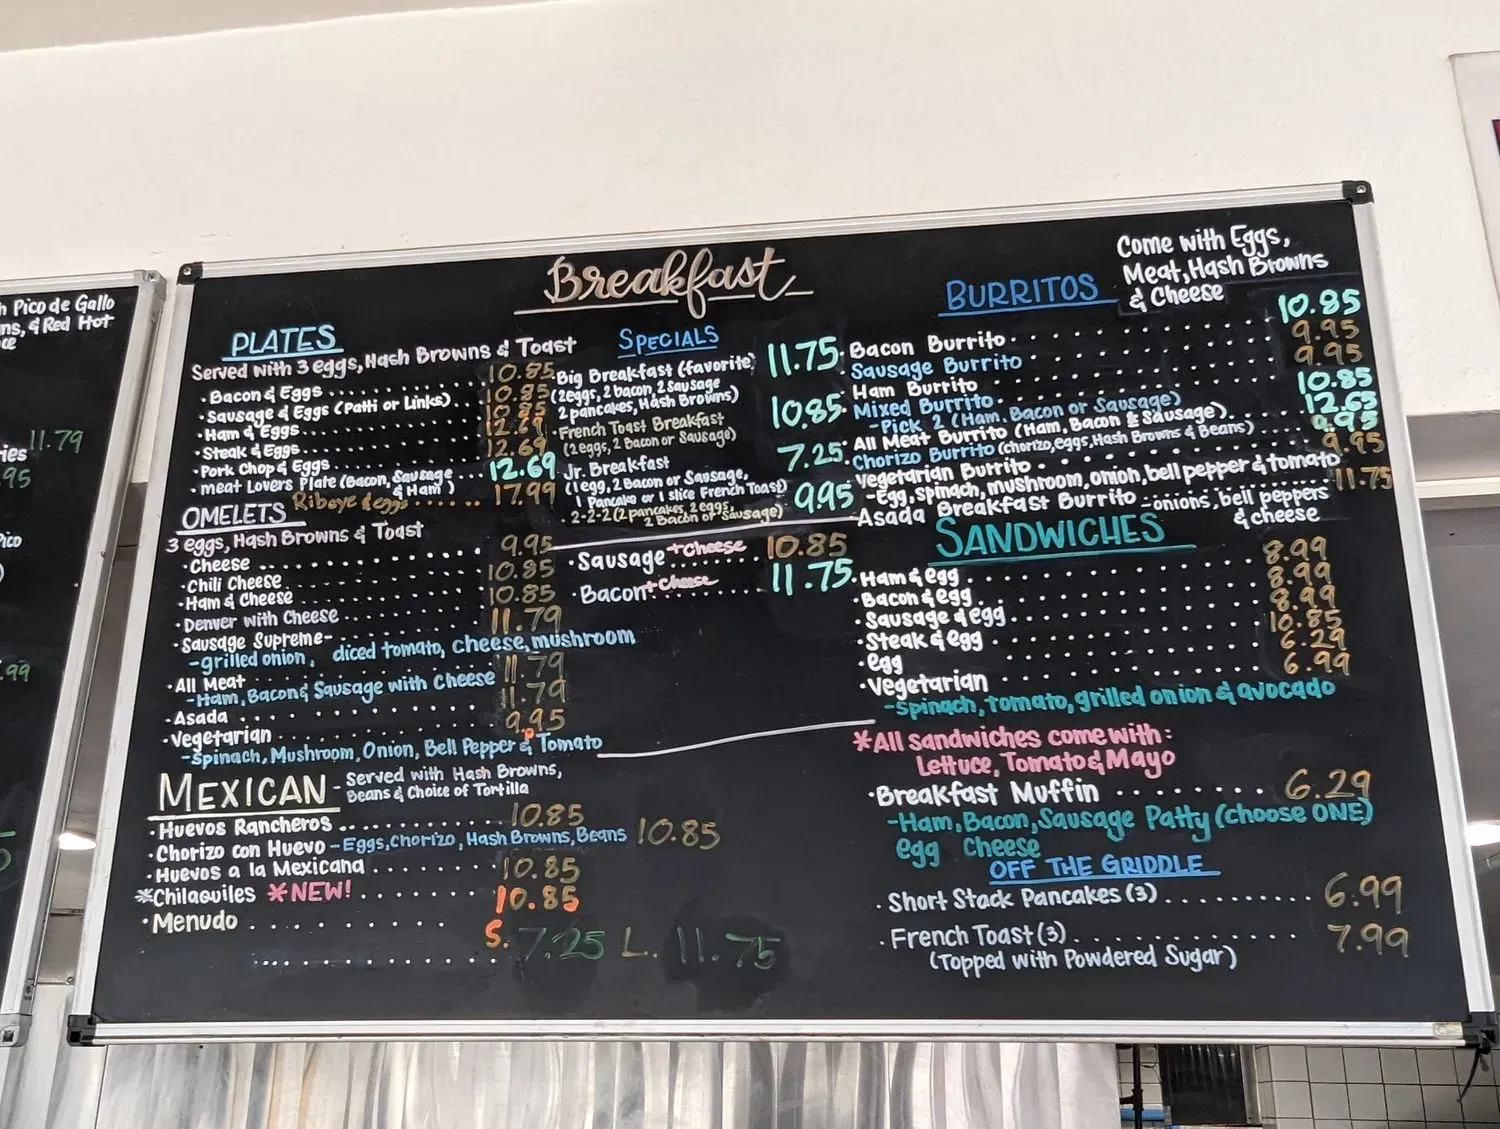 h Pico de Gallo
ns, & Red Hot
ce
ries 11.79
.95
Pico
)
.99
5
Breakfast
PLATES
Served with 3 eggs, Hash Browns & Toast
· Bacon & Eggs 10.85
· Sausage & Eggs (Patti or Links) 10.85
· Ham & Eggs 10.85
· Steak & Eggs 12.69
· Pork Chop & Eggs 12.69
· meat Lovers Plate (Bacon, Sausage & Ham) 12.69
Riboye & eggs 17.99
OMELETS
3 eggs, Hash Browns & Toast
· Cheese 9.95
· Chili Cheese 10.85
· Ham & Cheese 10.85
· Denver with Cheese 11.79
· Sausage Supreme-
-grilled onion, diced tomato, cheese, mushroom
· All Meat 11.79
-Ham, Bacon & Sausage with Cheese
· Asada 11.79
· Vegetarian 9.95
-Spinach, Mushroom, Onion, Bell Pepper & Tomato
MEXICAN - Served with Hash Browns,
Beans & Choice of Tortilla
· Huevos Rancheros 10.85
· Chorizo con Huevo - Eggs, Chorizo, Hash Browns, Beans 10.85
· Huevos a la Mexicana 10.85
*Chilaquiles *NEW! 10.85
· Menudo
S. 7.25 L. 11.75
SPECIALS
· Big Breakfast (favorite) 11.75
(2eggs, 2 bacon, 2 sausage
2 pancakes, Hash Browns)
· French Toast Breakfast 10.85
(2eggs, 2 Bacon or Sausage)
· Jr. Breakfast 7.25
(1 egg, 2 Bacon or Sausage,
1 Pancake or 1 slice French Toast)
· 2-2-2 (2 pancakes, 2 eggs, 9.95
2 Bacon or Sausage)
· Sausage + Cheese 10.85
· Bacon + Cheese 11.75
BURRITOS
Come with Eggs,
Meat, Hash Browns
& Cheese
· Bacon Burrito 10.85
Sausage Burrito 9.95
Ham Burrito 9.95
· Mixed Burrito 10.85
-Pick 2 (Ham, Bacon or Sausage)
· All Meat Burrito (Ham, Bacon & Sausage) 12.65
· Chorizo Burrito (chorizo, eggs, Hash Browns & Beans) 9.95
· Vegetarian Burrito 9.95
-Egg, spinach, mushroom, onion, bell pepper & tomato
Asada Breakfast Burrito -onions, bell peppers 11.75
& cheese
SANDWICHES
· Ham & egg 8.99
· Bacon & egg 8.99
· Sausage & egg 8.99
· Steak & egg 10.85
· egg 6.29
· Vegetarian 6.99
-spinach, tomato, grilled onion & avocado
*All sandwiches come with:
Lettuce, Tomato & Mayo
· Breakfast Muffin 6.29
-Ham, Bacon, Sausage Patty (choose ONE)
egg cheese
OFF THE GRIDDLE
· Short Stack Pancakes (3) 6.99
· French Toast (3) 7.99
(Topped with Powdered Sugar)